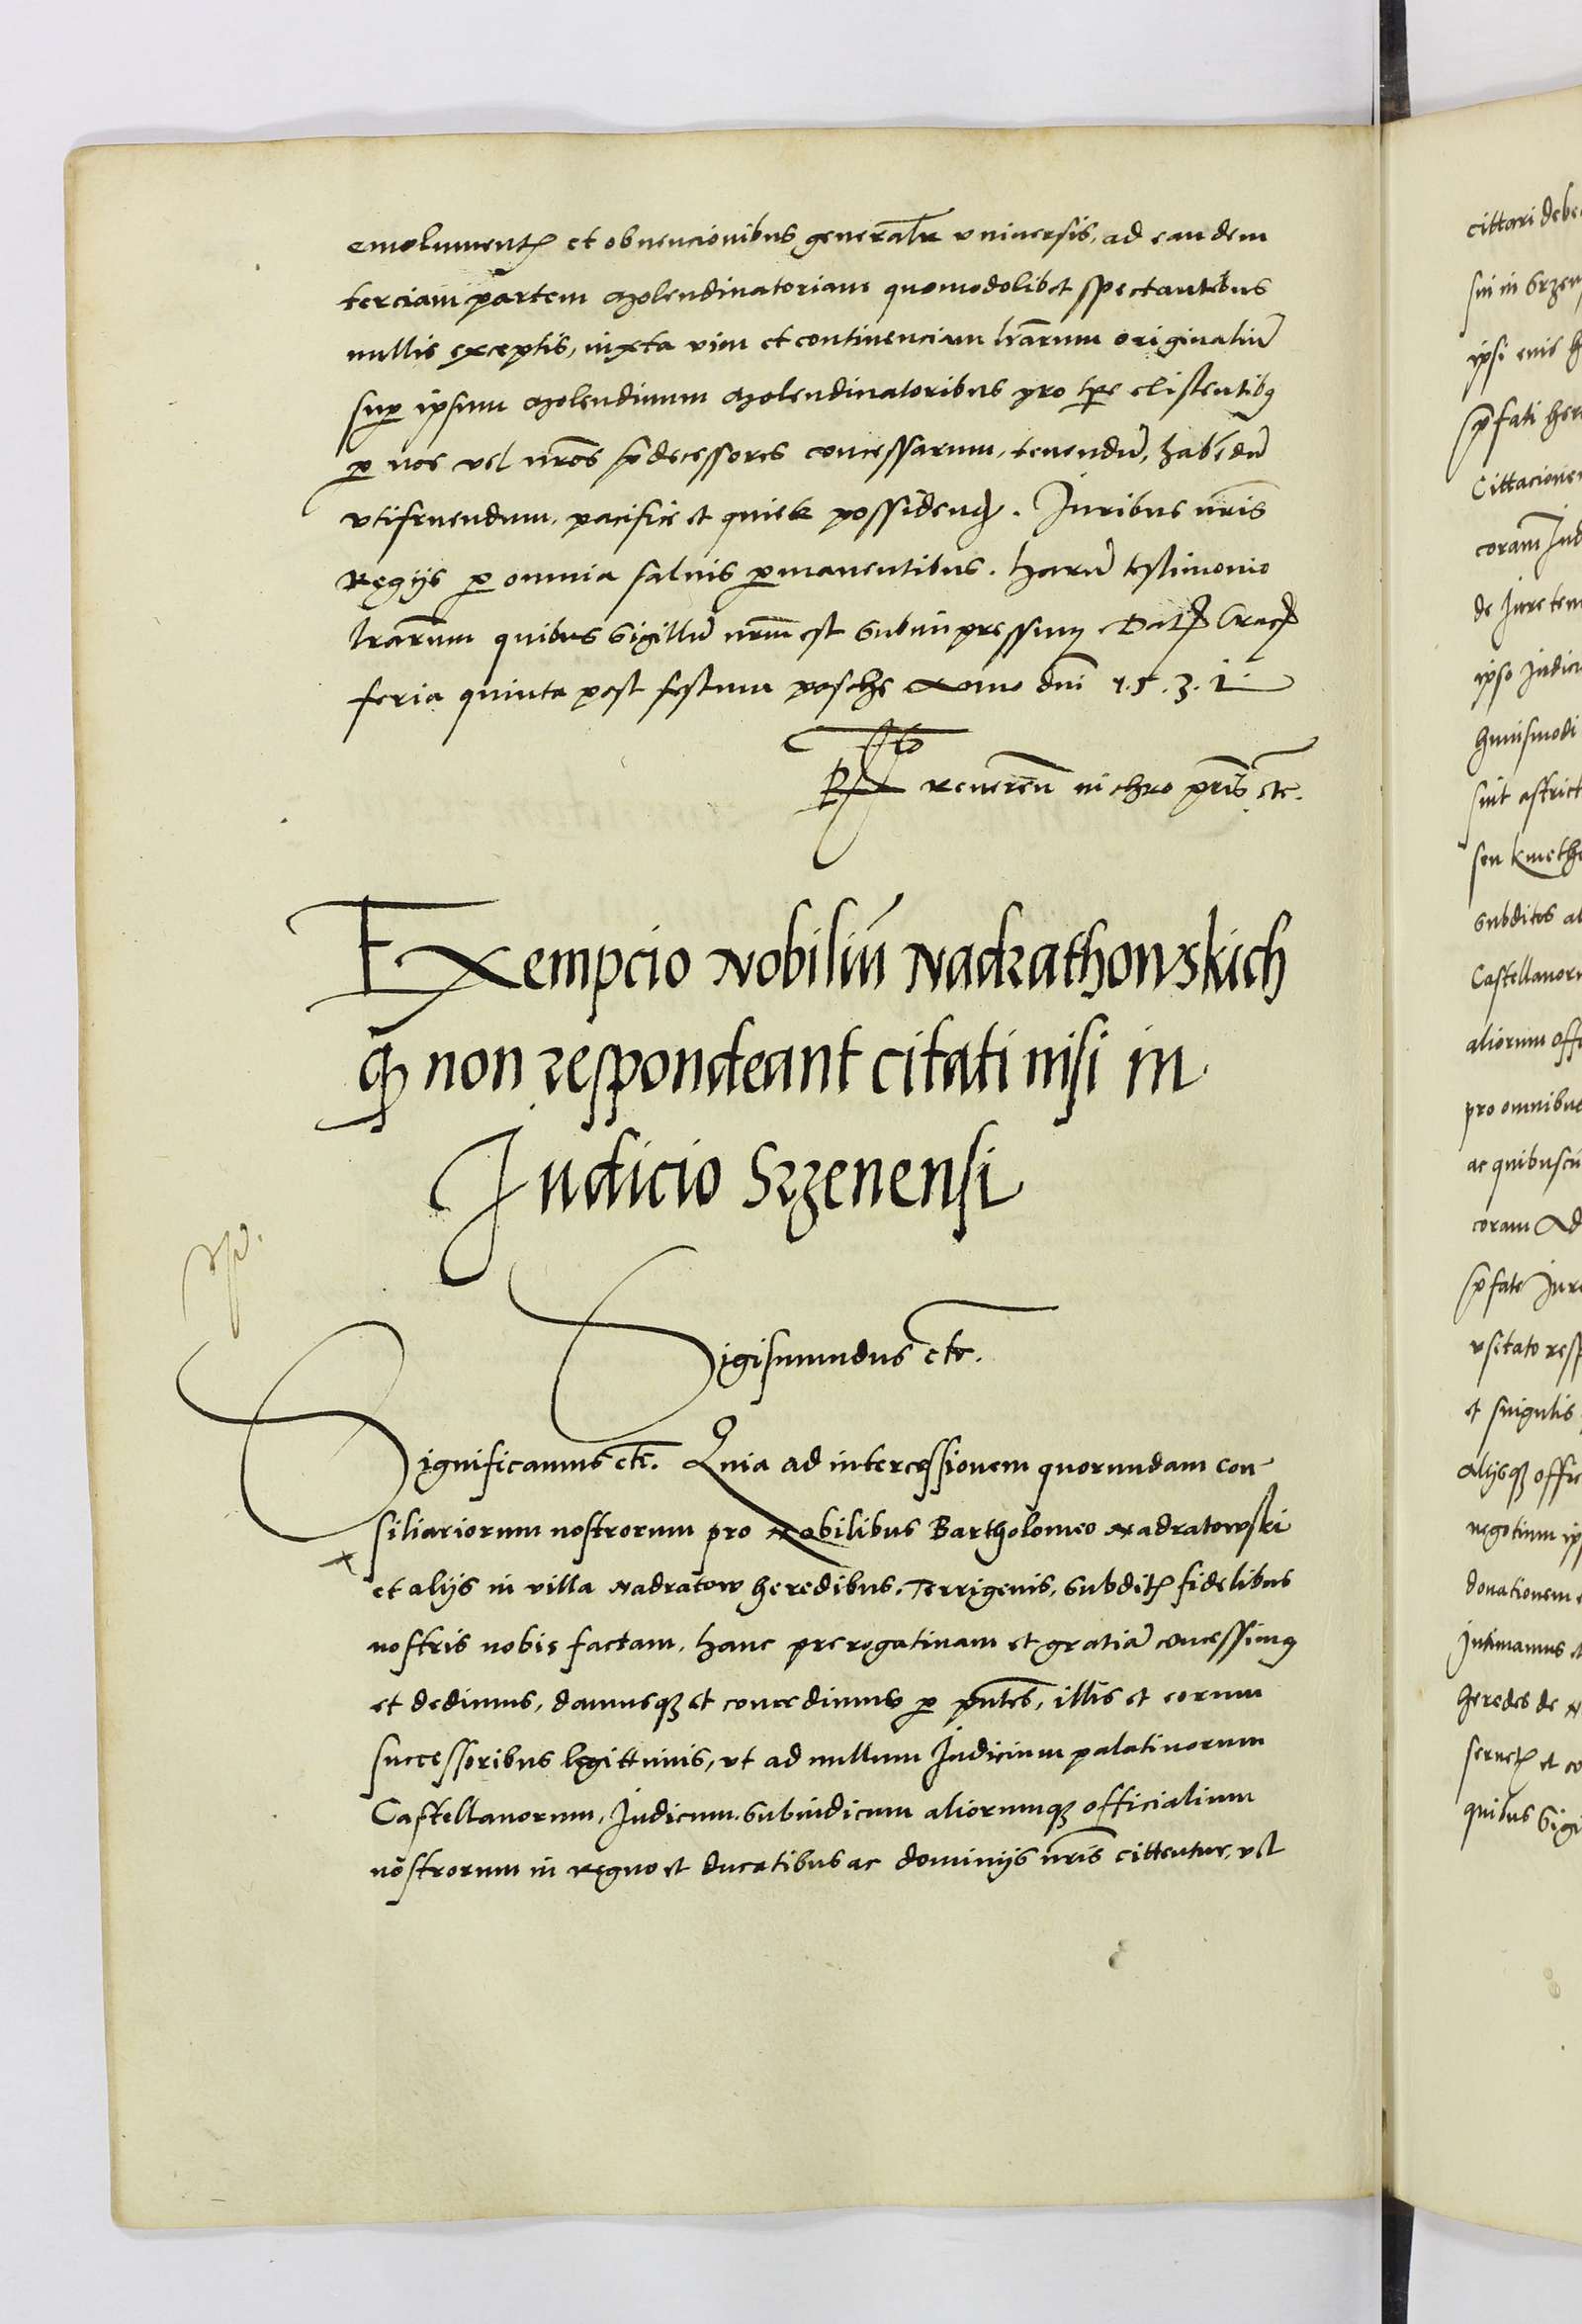 emolumentꝫ et obuencionibus generalr̄ vniuersis, ad eandem
terciam partem Molendinatoriam quomodolibet spectantibus
nullis exceptis, iuxta vim et continenciam lrārum originaliū
suꝑ ipsum Molendinum Molendinatoribus pro tꝑe existentibꝰ
ꝑ nos vel nrōs p̄decessores concessarum, tenendū, habēdū
vtifruendum, pacifice et quiete possidendꝭ. Iuribus nrīs
Regijs ꝑ omnia saluis ꝑmanentibus. Harū testimonio
lrārum quibus Sigillū nrūm est Subimpressuꝫ Datꝭ Cracꝭ
feria quinta post festum pasche Anno dnī 1.5.3.1.
Rꝭ Reuerēn in chro pr̄is etc.
EXempcio Nobiliū Nadrathowskich
qꝫ non respondeant citati nisi in
Iudicio Srzenensi
Sigismundus etc.
Significamus etc. Quia ad intercessionem quorundam con
siliariorum nostrorum pro Nobilibus Bartholomeo Nadratowski
et alijs in villa Nadratow heredibus, Terrigenis, Subditꝫ fidelibus
nostris nobis factam, hanc prerogatiuam et gratiā concessimꝰ
et dedimus, damusqꝫ et concedimus ꝑ pn̄tes, illis et eorum
successoribus legittimis, vt ad nullum Iudicium palatinorum
Castellanorum, Iudicum, Subiudicum aliorumqꝫ officialium
nostrorum in Regno et ducatibus ac dominijs nrīs cittentur, vel
cittari debe
sui in Srzen
ipsi eius h
p̄fati her
Cittacionem
coram Iud
de Iure ten
ipso Iudici
huiusmodi
sint astrict
seu kmetho
subditos al
Castellanoru
aliorum offi
pro omnibus
ac quibuscū
coram Ad
p̄fate Iure
vsitato resp
et singulis
alijsqꝫ offic
negotium ip
donationem
Intimamus et
heredes de N
seruetꝫ et co
quibus Sigi